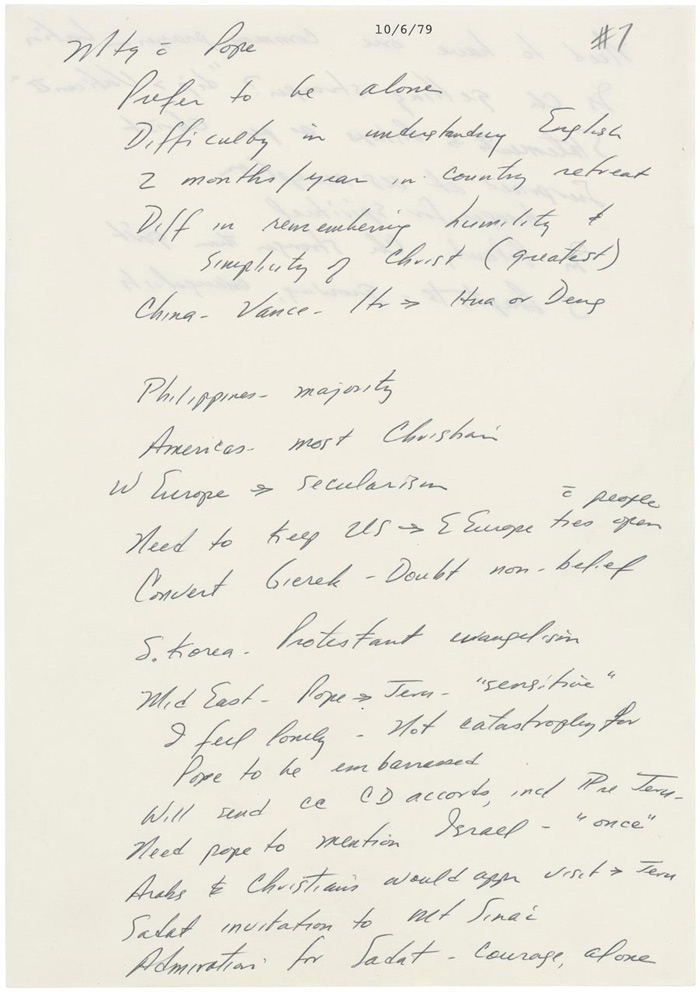 10/6/79
#1
Mtg c̄ Pope
Prefer to be alone
Difficulty in understanding English
2 months/year in country retreat
Diff in remembering humility &
simplicity of Christ (greatest)
China - Vance - ltr → Hua or Deng
Philippines - majority
Americas - most Christian
W Europe → secularism
c̄ people
Need to keep US → E Europe ties open
Convert Gierek - Doubt non-belief
S. Korea - Protestant evangelism
Mid East - Pope → Jeru - "sensitive"
I feel lonely - Not catastrophy for
Pope to be embarrassed
Will send cc CD accords, incl Jeru -
Need pope to mention Israel - "once"
Arabs & Christians would appr visit → Jeru
Sadat invitation to Mt Sinai
Admiration for Sadat - courage, alone